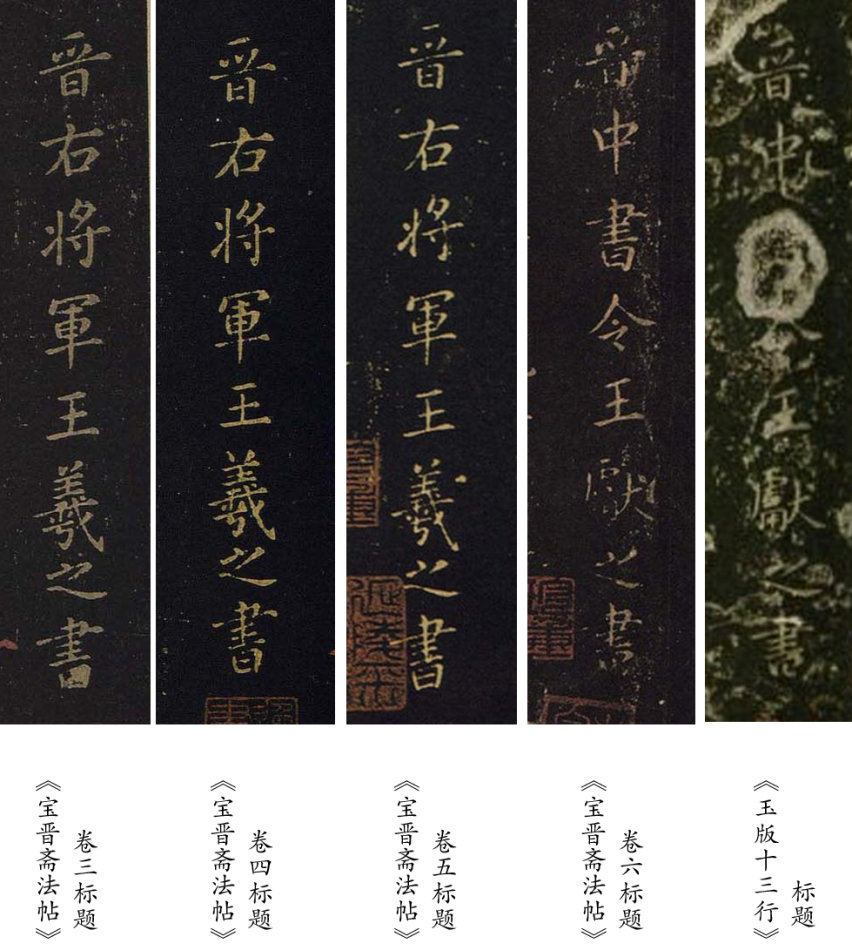 晋右将軍王羲之書
晋右将軍王羲之書
晋右将軍王羲之書
晋中書令王獻之書
晋中令王獻之書
《宝晋斋法帖》
卷三标题
《宝晋斋法帖》
卷四标题
《宝晋斋法帖》
卷五标题
《宝晋斋法帖》
卷六标题
《玉版十三行》
标题